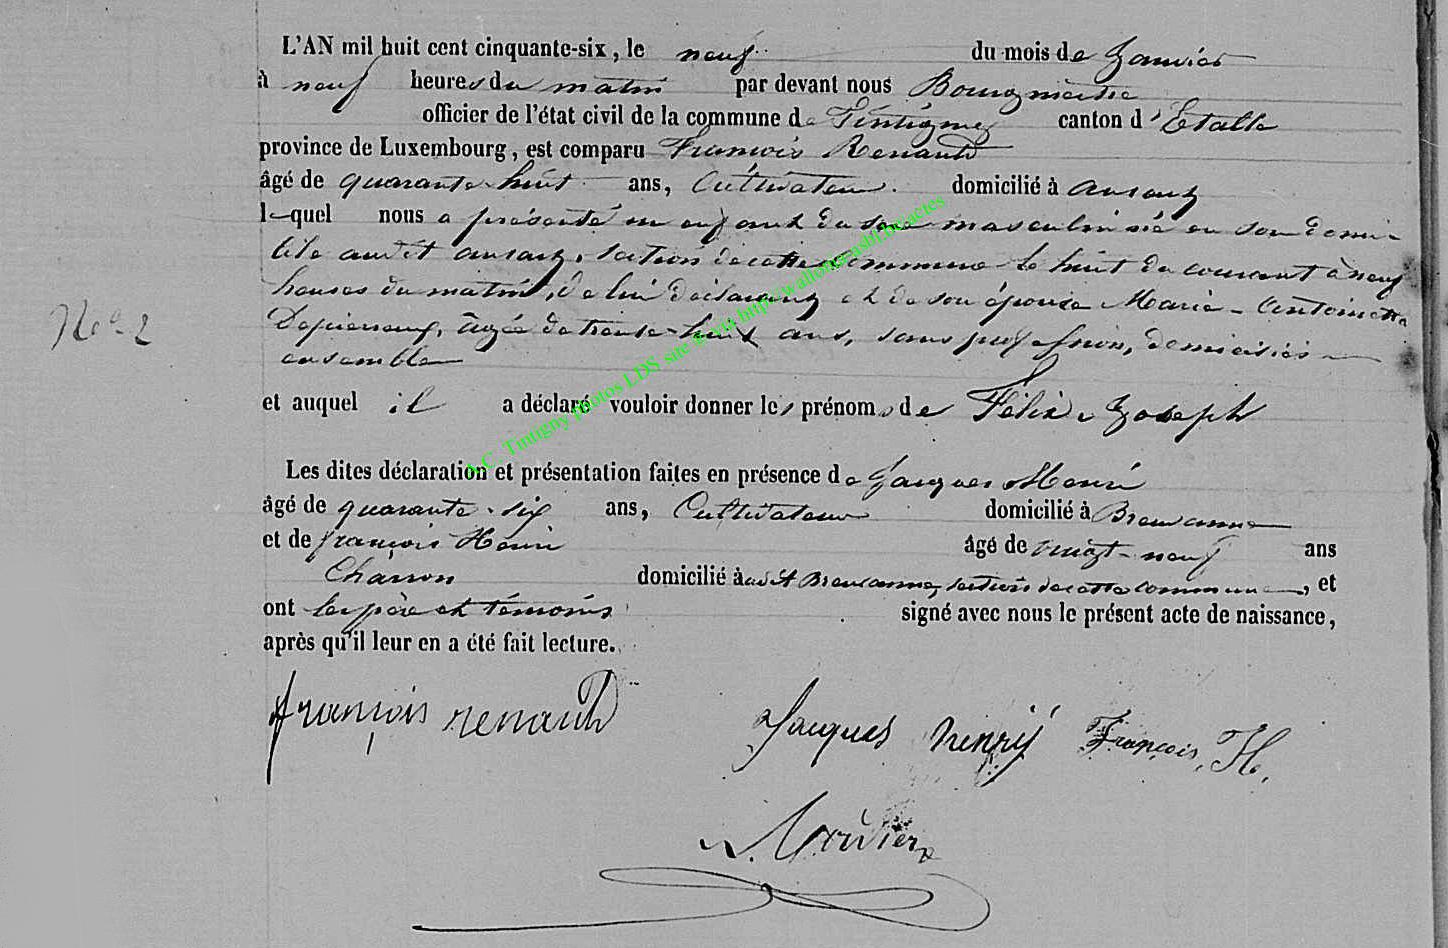 L'AN mil huit cent cinquante-six, le neuf du mois de Janvier
à neuf heures du matin par devant nous Bourgmestre
officier de l'état civil de la commune de Tintigny canton d'Etalle
province de Luxembourg, est comparu François Renauld
âgé de quarante-huit ans, Cultivateur domicilié à ansart
lequel nous a présenté un enfant du sexe masculin né en son domi-
cile audit ansart, section de cette commune le huit du courant à neuf
heures du matin, de lui déclarant et de son épouse Marie-Antoinette
âgée de trente-huit ans, sans profession, domiciliés
ensemble
No 2
et auquel il a déclaré vouloir donner les prénoms de Félix Joseph
Les dites déclaration et présentation faites en présence de Jacques Henri
âgé de quarante-six ans, Cultivateur domicilié à Breuvanne
et de françois Henri âgé de vingt-neuf ans
Charron domicilié audit Breuvanne, section de cette commune, et
ont les père et témoins signé avec nous le présent acte de naissance,
après qu'il leur en a été fait lecture.
françois renauld Jacques henry François, H.
A.C. Tintigny photos LDS site via http://wallonia.asbl.be/actes